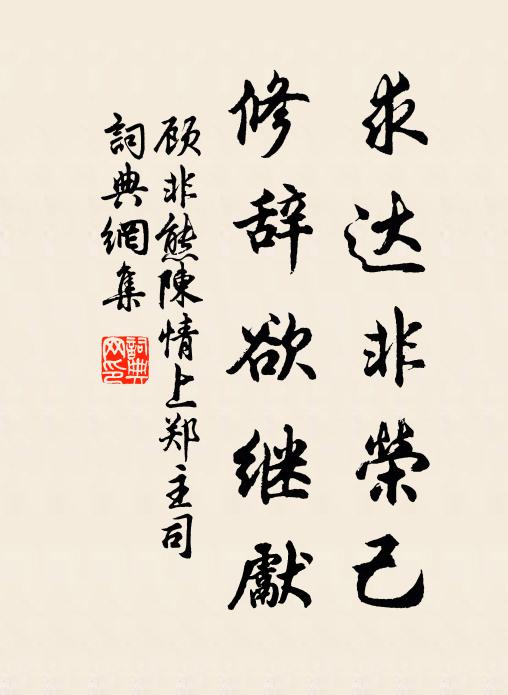 求达非榮己
修辞欲继獻
顾非熊陳情上郑主司
詞典網集
詞典网印